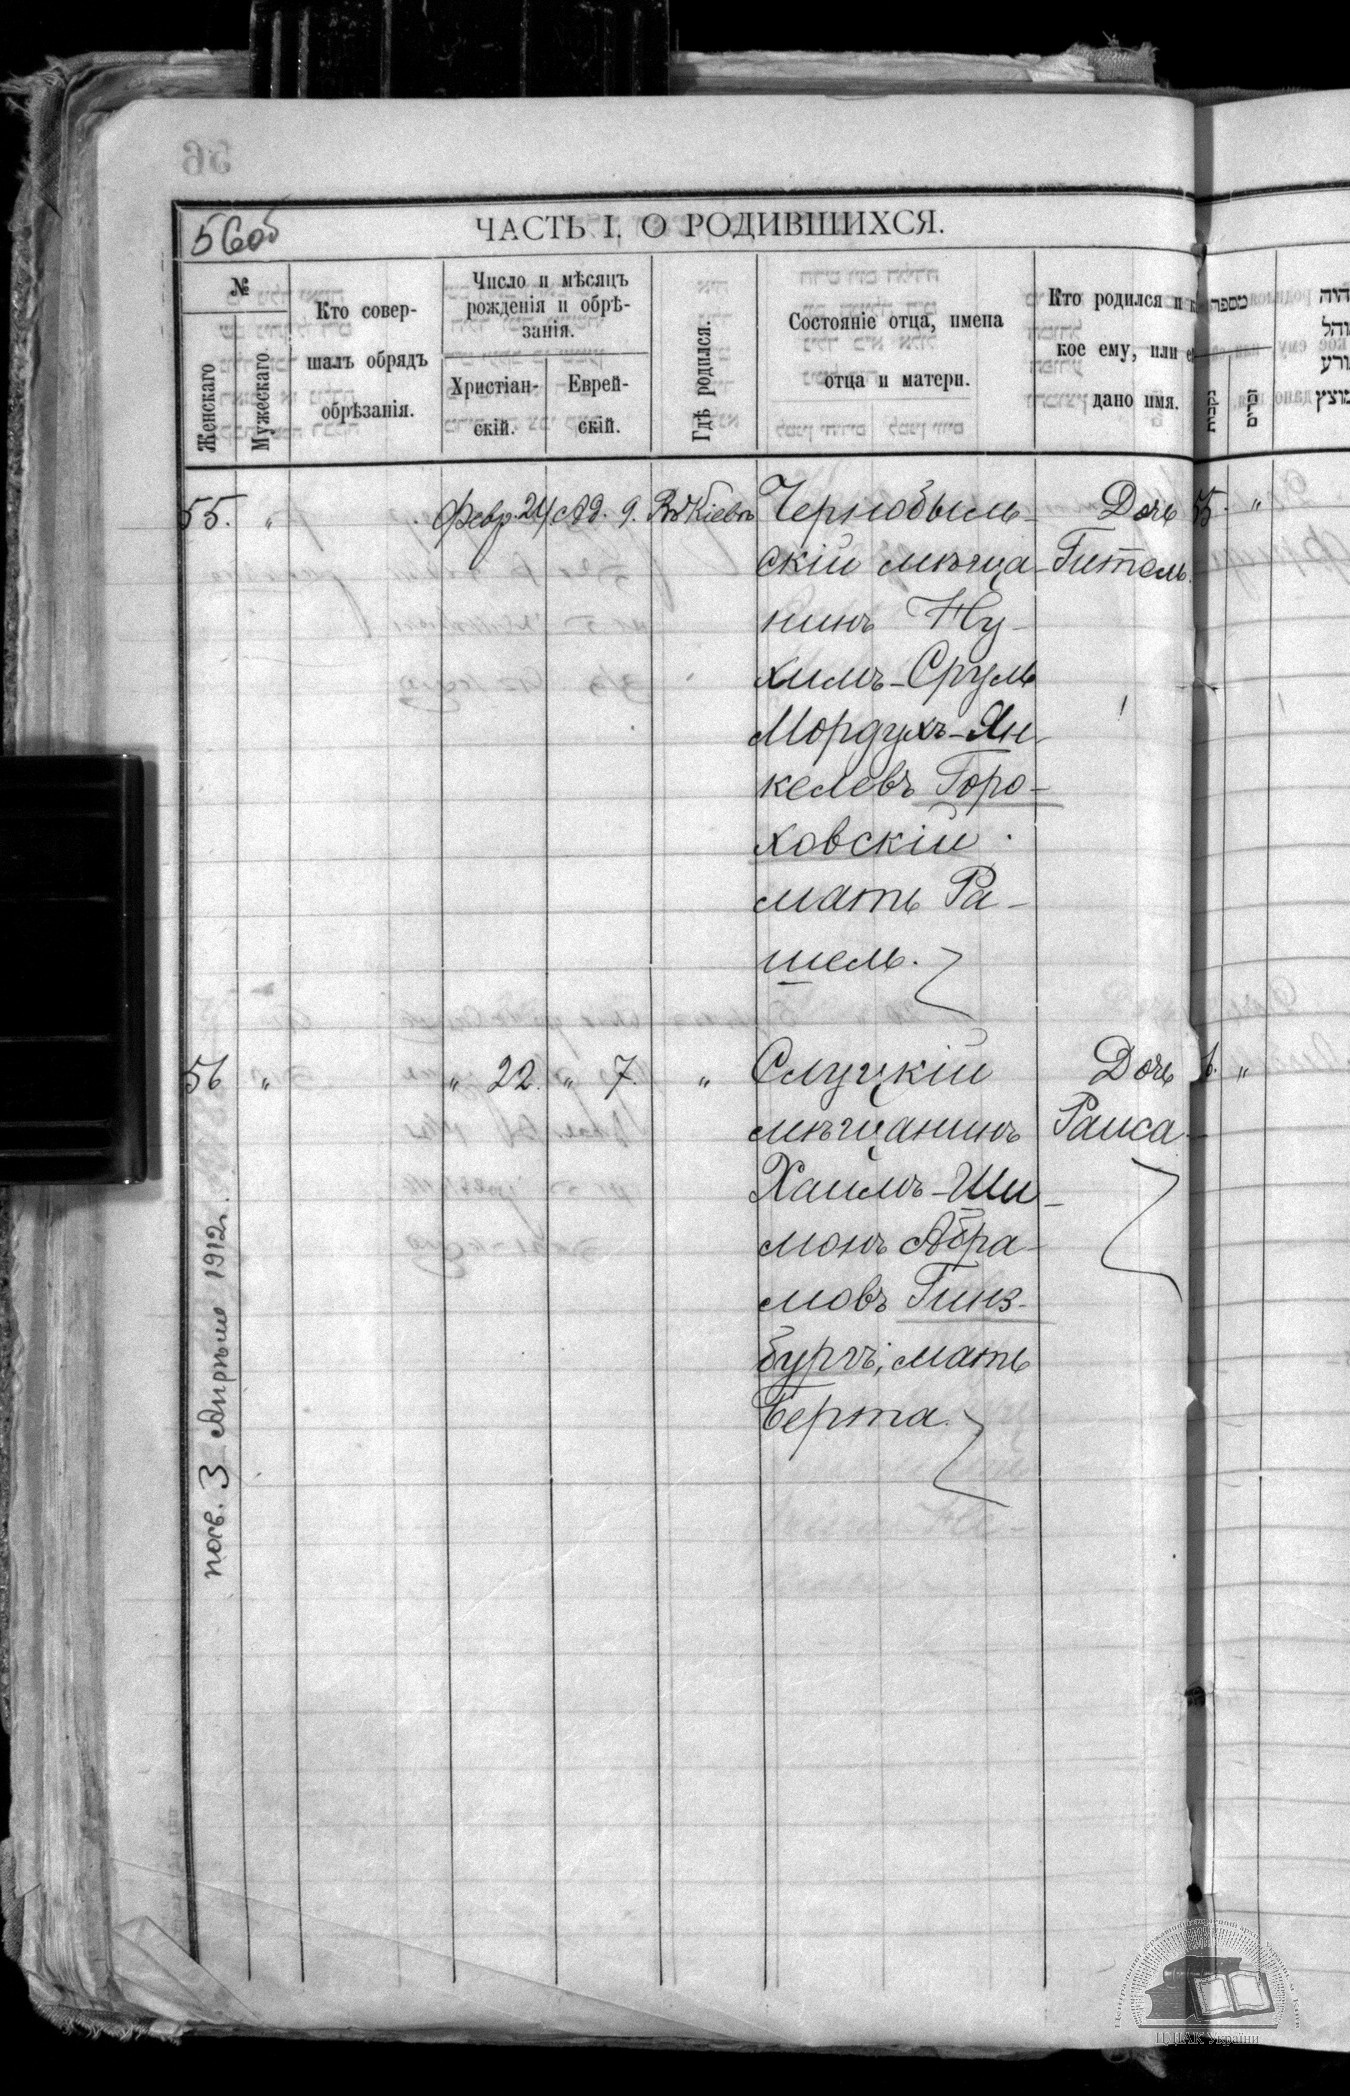 56об
ЧАСТЬ I. О РОДИВШИХСЯ.
№
Женскаго
Мужескаго
Кто совер-
шалъ обрядъ
обрѣзанія.
Число и мѣсяцъ
рожденія и обрѣ-
занія.
Христіан-
скій.
Еврей-
скій.
Гдѣ родился.
Состояніе отца, имена
отца и матери.
Кто родился и к
кое ему, или е
дано имя.
מספר
נקבות
זכרים
55. " Февр. 24 Ад. 9. Въ Кіевѣ Чернобыль- Дочь 55. "
скій мѣща- Гитель.
нинъ Ну-
химъ-Сруль
Мордухъ-Ян-
келевъ Горо-
ховскій.
мать Ра-
шель.
56 " " 22. " 7. " Слуцкій Дочь 6. "
мѣщанинъ Раиса
Хаимъ-Ши-
монъ Абра-
мовъ Гинз-
бургъ; мать
Берта.
посв. 3 Апрѣля 1912г.
ЦДІАК України